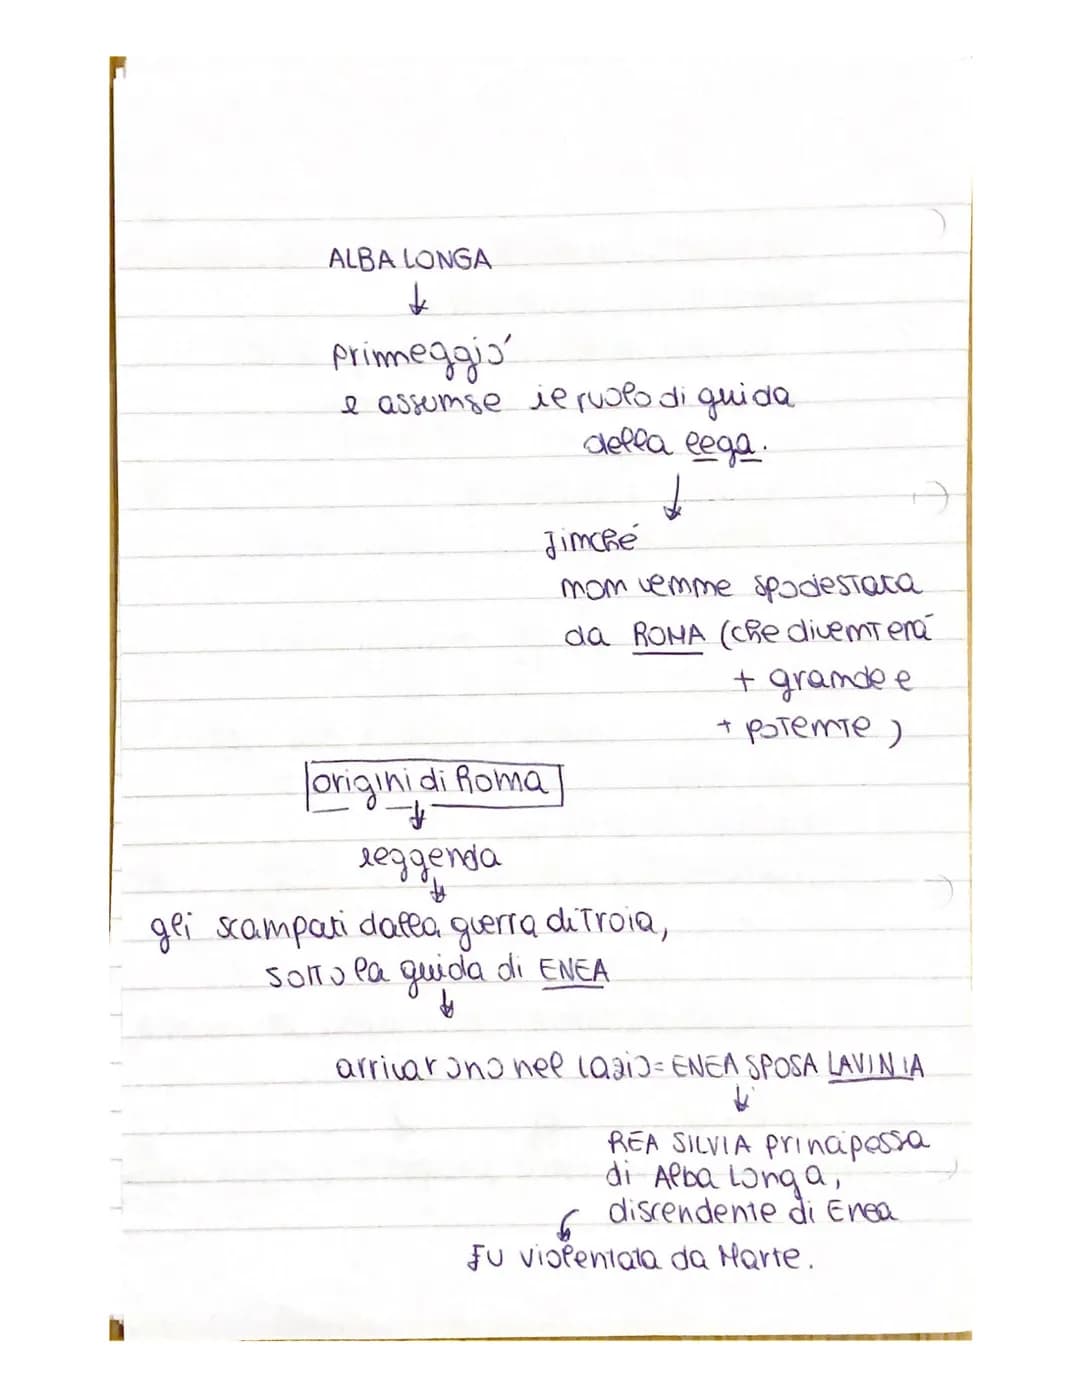 ALBA LONGA
↓
primeggio'
e assunse il ruolo di guida
della lega.
↓
finché
non venne spodestata
da ROMA (che diventerà
+ grande e
+ potente)
origini di Roma
↓
leggenda
↓
gli scampati dalla guerra di Troia,
sotto la guida di ENEA
↓
arrivarono nel lazio = ENEA SPOSA LAVINIA
↓
REA SILVIA principessa
di Alba Longa,
discendente di Enea
↓
fu violentata da Marte.